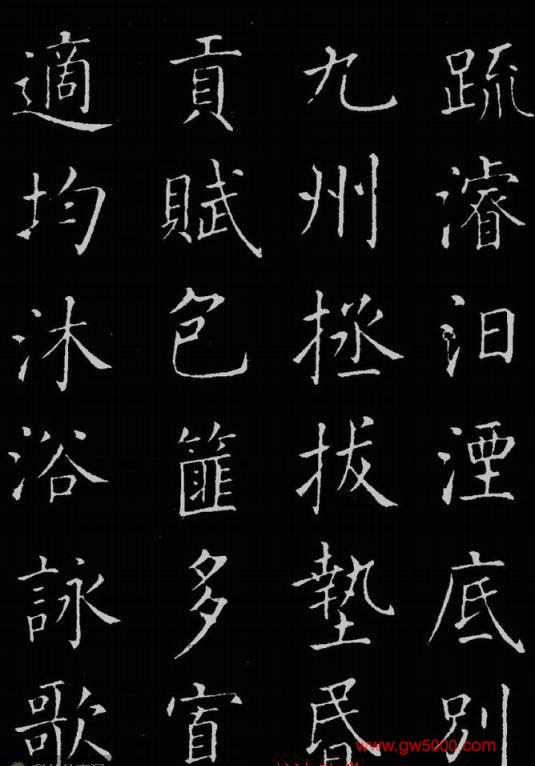 疏濬汩湮底別
九州拯拔墊昬
貢賦包篚多寡
適均沐浴詠歌
www.gw5000.com